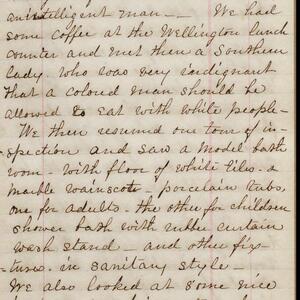 an intelligent man - We had
some coffee at the Wellington lunch
counter and met there a Southern
lady. who was very indignant
that a colored man should be
allowed to eat with white people -
We then resumed our tour of in-
-spection and saw a model bath
room - with floor of white tiles - &
marble wainscots - porcelain tubs,
one for adults - the other for children
shower bath with rubber curtain
wash stand - and other fix-
-tures. in sanitary style -
We also looked at some nice